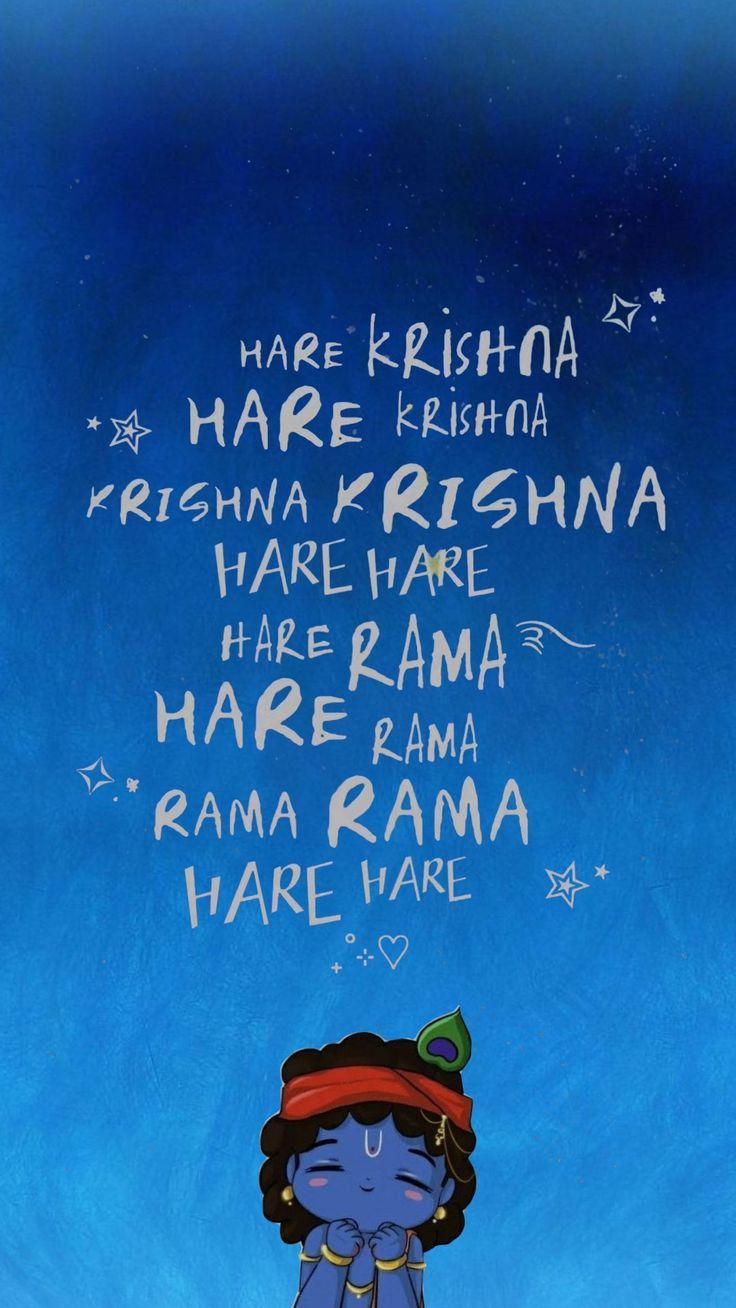 HARE KRISHNA
HARE KRISHNA
KRISHNA KRISHNA
HARE HARE
HARE RAMA
HARE RAMA
RAMA RAMA
HARE HARE